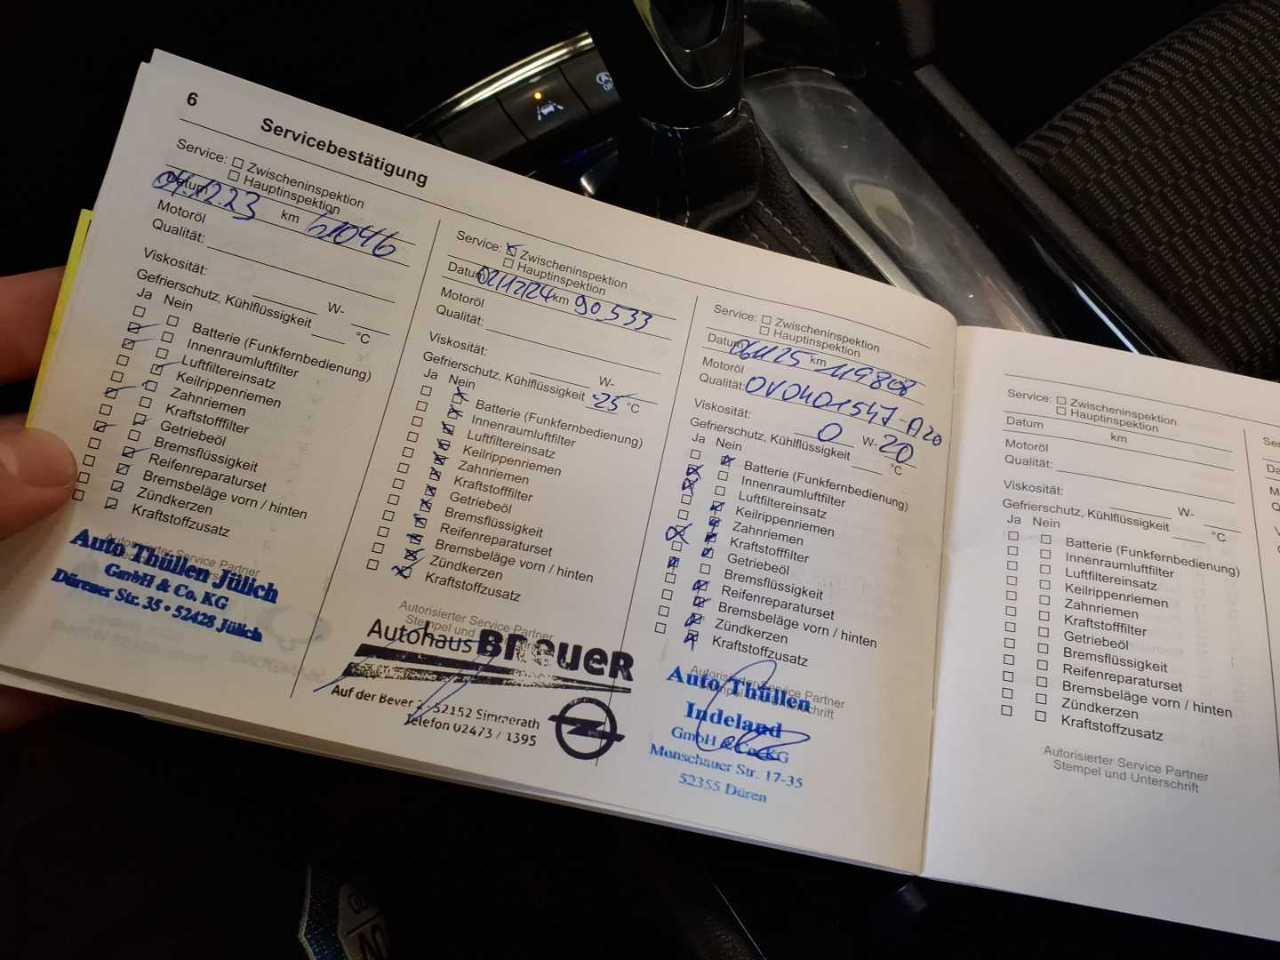 6
Servicebestätigung
Service: Zwischeninspektion
Hauptinspektion
Datum 04.12.23 km 61046
Motoröl
Qualität:
Viskosität: W-
Gefrierschutz, Kühlflüssigkeit °C
Ja Nein
Batterie (Funkfernbedienung)
Innenraumluftfilter
Luftfiltereinsatz
Keilrippenriemen
Zahnriemen
Kraftstofffilter
Getriebeöl
Bremsflüssigkeit
Reifenreparaturset
Bremsbeläge vorn / hinten
Zündkerzen
Kraftstoffzusatz
Service Partner
Auto Thüllen Jülich
GmbH & Co. KG
Dürener Str. 35 • 52428 Jülich
Service: Zwischeninspektion
Hauptinspektion
Datum 02.12.24 km 90.533
Motoröl
Qualität:
Viskosität: W-
Gefrierschutz, Kühlflüssigkeit -25 °C
Ja Nein
Batterie (Funkfernbedienung)
Innenraumluftfilter
Luftfiltereinsatz
Keilrippenriemen
Zahnriemen
Kraftstofffilter
Getriebeöl
Bremsflüssigkeit
Reifenreparaturset
Bremsbeläge vorn / hinten
Zündkerzen
Kraftstoffzusatz
Autorisierter Service Partner
Stempel und
Autohaus Brauer
Auf der Bever 52152 Simmerath
Telefon 02473 / 1395
Service: Zwischeninspektion
Hauptinspektion
Datum km 119808
Motoröl
Qualität: OV0401547-A20
Viskosität: 0 W- 20
Gefrierschutz, Kühlflüssigkeit °C
Ja Nein
Batterie (Funkfernbedienung)
Innenraumluftfilter
Luftfiltereinsatz
Keilrippenriemen
Zahnriemen
Kraftstofffilter
Getriebeöl
Bremsflüssigkeit
Reifenreparaturset
Bremsbeläge vorn / hinten
Zündkerzen
Kraftstoffzusatz
Autorisierter Service Partner
Auto Thüllen
Indeland
GmbH & Co. KG
Monschauer Str. 17-35
52355 Düren
Service: Zwischeninspektion
Hauptinspektion
Datum km
Motoröl
Qualität:
Viskosität: W-
Gefrierschutz, Kühlflüssigkeit °C
Ja Nein
Batterie (Funkfernbedienung)
Innenraumluftfilter
Luftfiltereinsatz
Keilrippenriemen
Zahnriemen
Kraftstofffilter
Getriebeöl
Bremsflüssigkeit
Reifenreparaturset
Bremsbeläge vorn / hinten
Zündkerzen
Kraftstoffzusatz
Autorisierter Service Partner
Stempel und Unterschrift